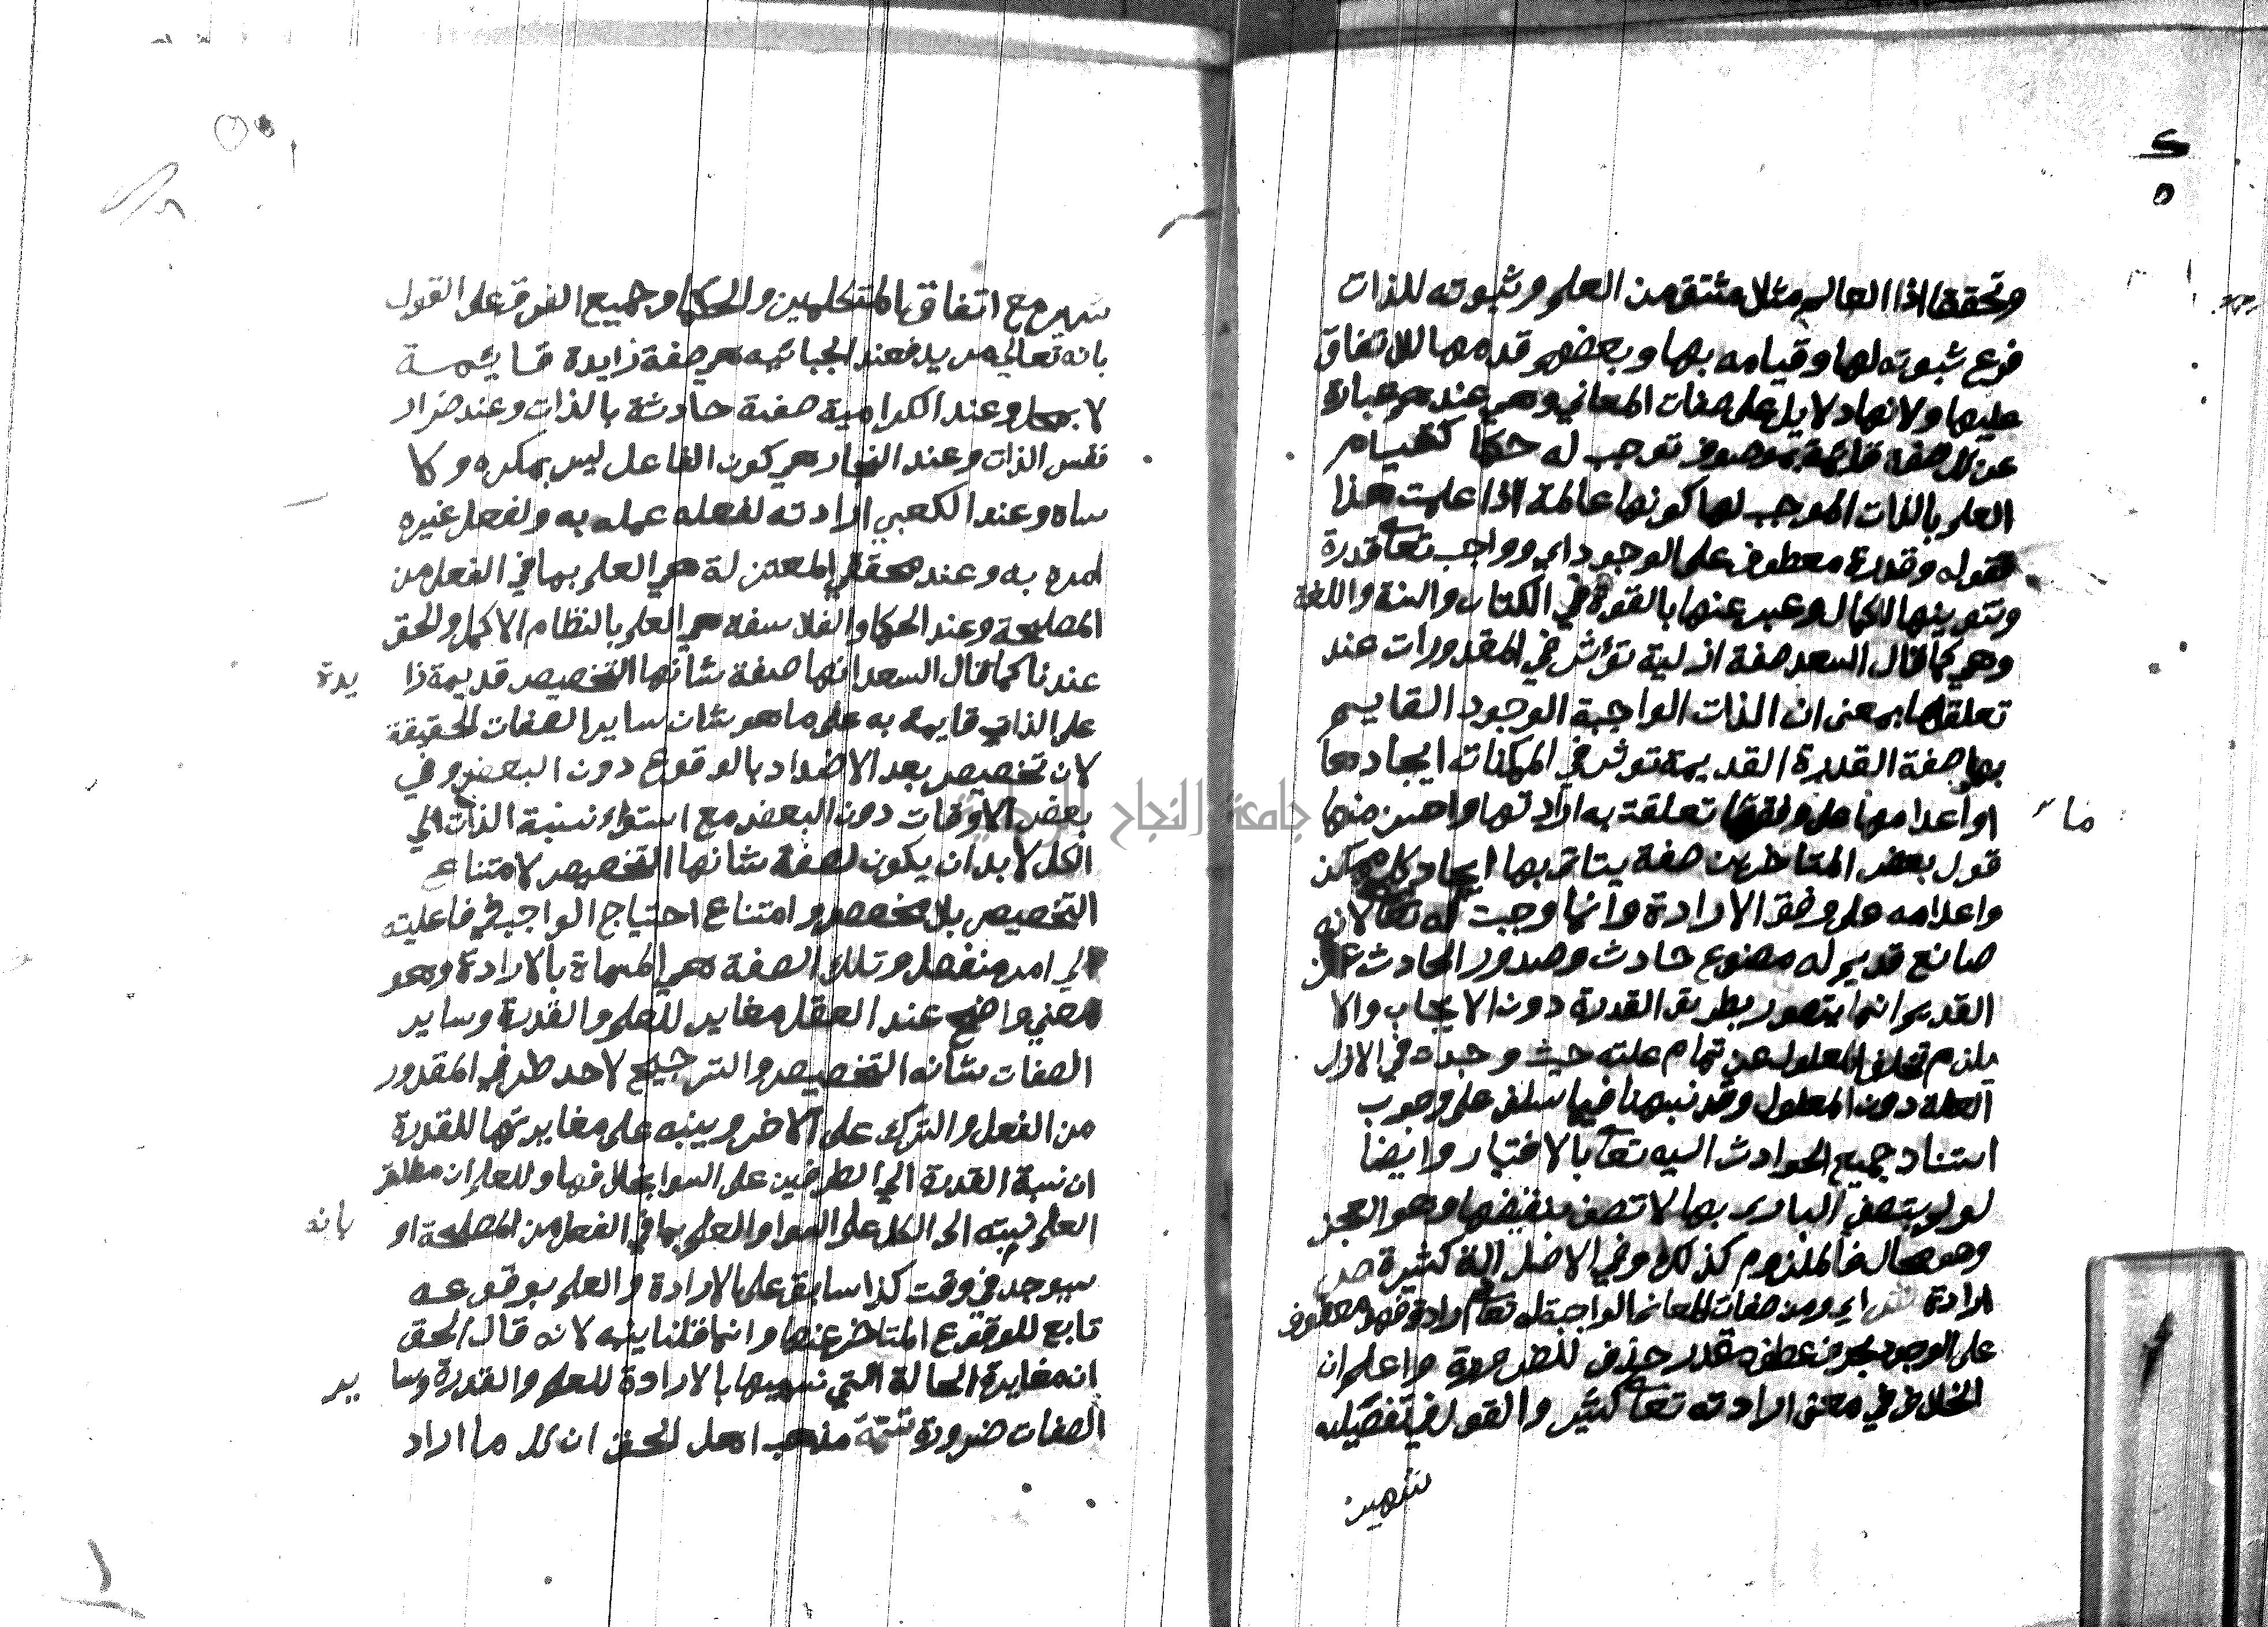 وتحققها اذا العالم مثلا مشتق من العلم وثبوته للذات
فرع ثبوته لها وقيامه بها وبعضهم قدمها للاتفاق
عليها ولانها دلايل على صفات المعاني وهي عندهم عبارة
عن كل صفة قائمة بموصوف توجب له حكما كقيام
العلم بالذات الموجب لها كونها عالمة اذا علمت هذا
فقوله وقدرة معطوف على الوجود اي وواجب له تعا قدرة
وتنوينها للكمال وعبر عنها بالقوة في الكتاب والسنة واللغة
وهي كما قال السعد صفة ازلية تؤثر في المقدورات عند
تعلقها بمعنى ان الذات الواجبة الوجود القايم
بها صفة القدرة القديمة تؤثر في الممكنات ايجادها
او اعدامها على وفق ما تعلقت به ارادتها واحسن منها
ما
قول بعض المتاخرين صفة يتاتى بها ايجاد كل ممكن
واعدامه على وفق الارادة وانما وجبت له تعا لانه
صانع قديم له مصنوع حادث وصدور الحادث عن
القديم انما يتصور بطريق القدرة دون الايجاب والا
يلزم تخلف المعلول عن تمام علته حيث وجدت في الازل
العلة دون المعلول وقد نبهنا فيما سلف على وجوب
استناد جميع الحوادث اليه تعا بالاختيار وايضا
لو لم يتصف الباري بها لاتصف بنقيضها وهو العجز
وهو محال فالملزوم كذلك وفي الاصل ادلة كثيرة ص
ارادة ش اي ومن صفات المعاني الواجبة له تعا ارادة فهو معطوف
على الوجود بحرف عطف مقدر حذف للضرورة واعلم ان
الخلاف في معنى ارادته تعا كثير والقول في تفصيله
شهير
شهير مع اتفاق المتكلمين والحكما وجميع الفرق على القول
بانه تعالى مريد فعند الجبائيه هي صفة زايدة قايمة
لا بمحل وعند الكرامية صفة حادثة بالذات وعند ضرار
نفس الذات وعند النجار هي كون الفاعل ليس بمكره ولا
ساه وعند الكعبي ارادته لفعله علمه به ولفعل غيره
امره به وعند محققي المعتزلة هي العلم بما في الفعل من
المصلحة وعند الحكما والفلاسفة هي العلم بالنظام الاكمل والحق
عندنا كما قال السعد انها صفة شأنها التخصيص قديمة زا يدة
على الذات قايمة به على ما هو شان ساير الصفات الحقيقة
لان تخصيص بعد الاضداد بالوقوع دون البعض وفي
بعض الاوقات دون البعض مع استواء نسبة الذات الي
الكل لا بد ان يكون لصفة شانها التخصيص لامتناع
التخصيص بلا مخصص وامتناع احتياج الواجب في فاعليته
الي امر منفصل وتلك الصفة هي المسماة بالارادة وهو
معني واضح عند العقل مغاير للعلم والقدرة وساير
الصفات شانه التخصيص والترجيح لاحد طرفي المقدور
من الفعل والترك على الاخر وينبه على مغايرتها للقدرة
ان نسبة القدرة الي الطرفين على السوا بخلافها وللعلم ان مطلق
العلم نسبته الى الكل على السوا والعلم بما في الفعل من المصلحة او بانه
سيوجد في وقت كذا سابق على الارادة والعلم بوقوعه
تابع للوقوع المتاخر عنها وانما قلنا ينبه لانه قال الحق
ان مغايرة الحالة التي نسميها بالارادة للعلم والقدرة وسا ير
الصفات ضرورة تتمة مذهب اهل الحق ان كل ما اراد
جامعة النجاح الوطنية